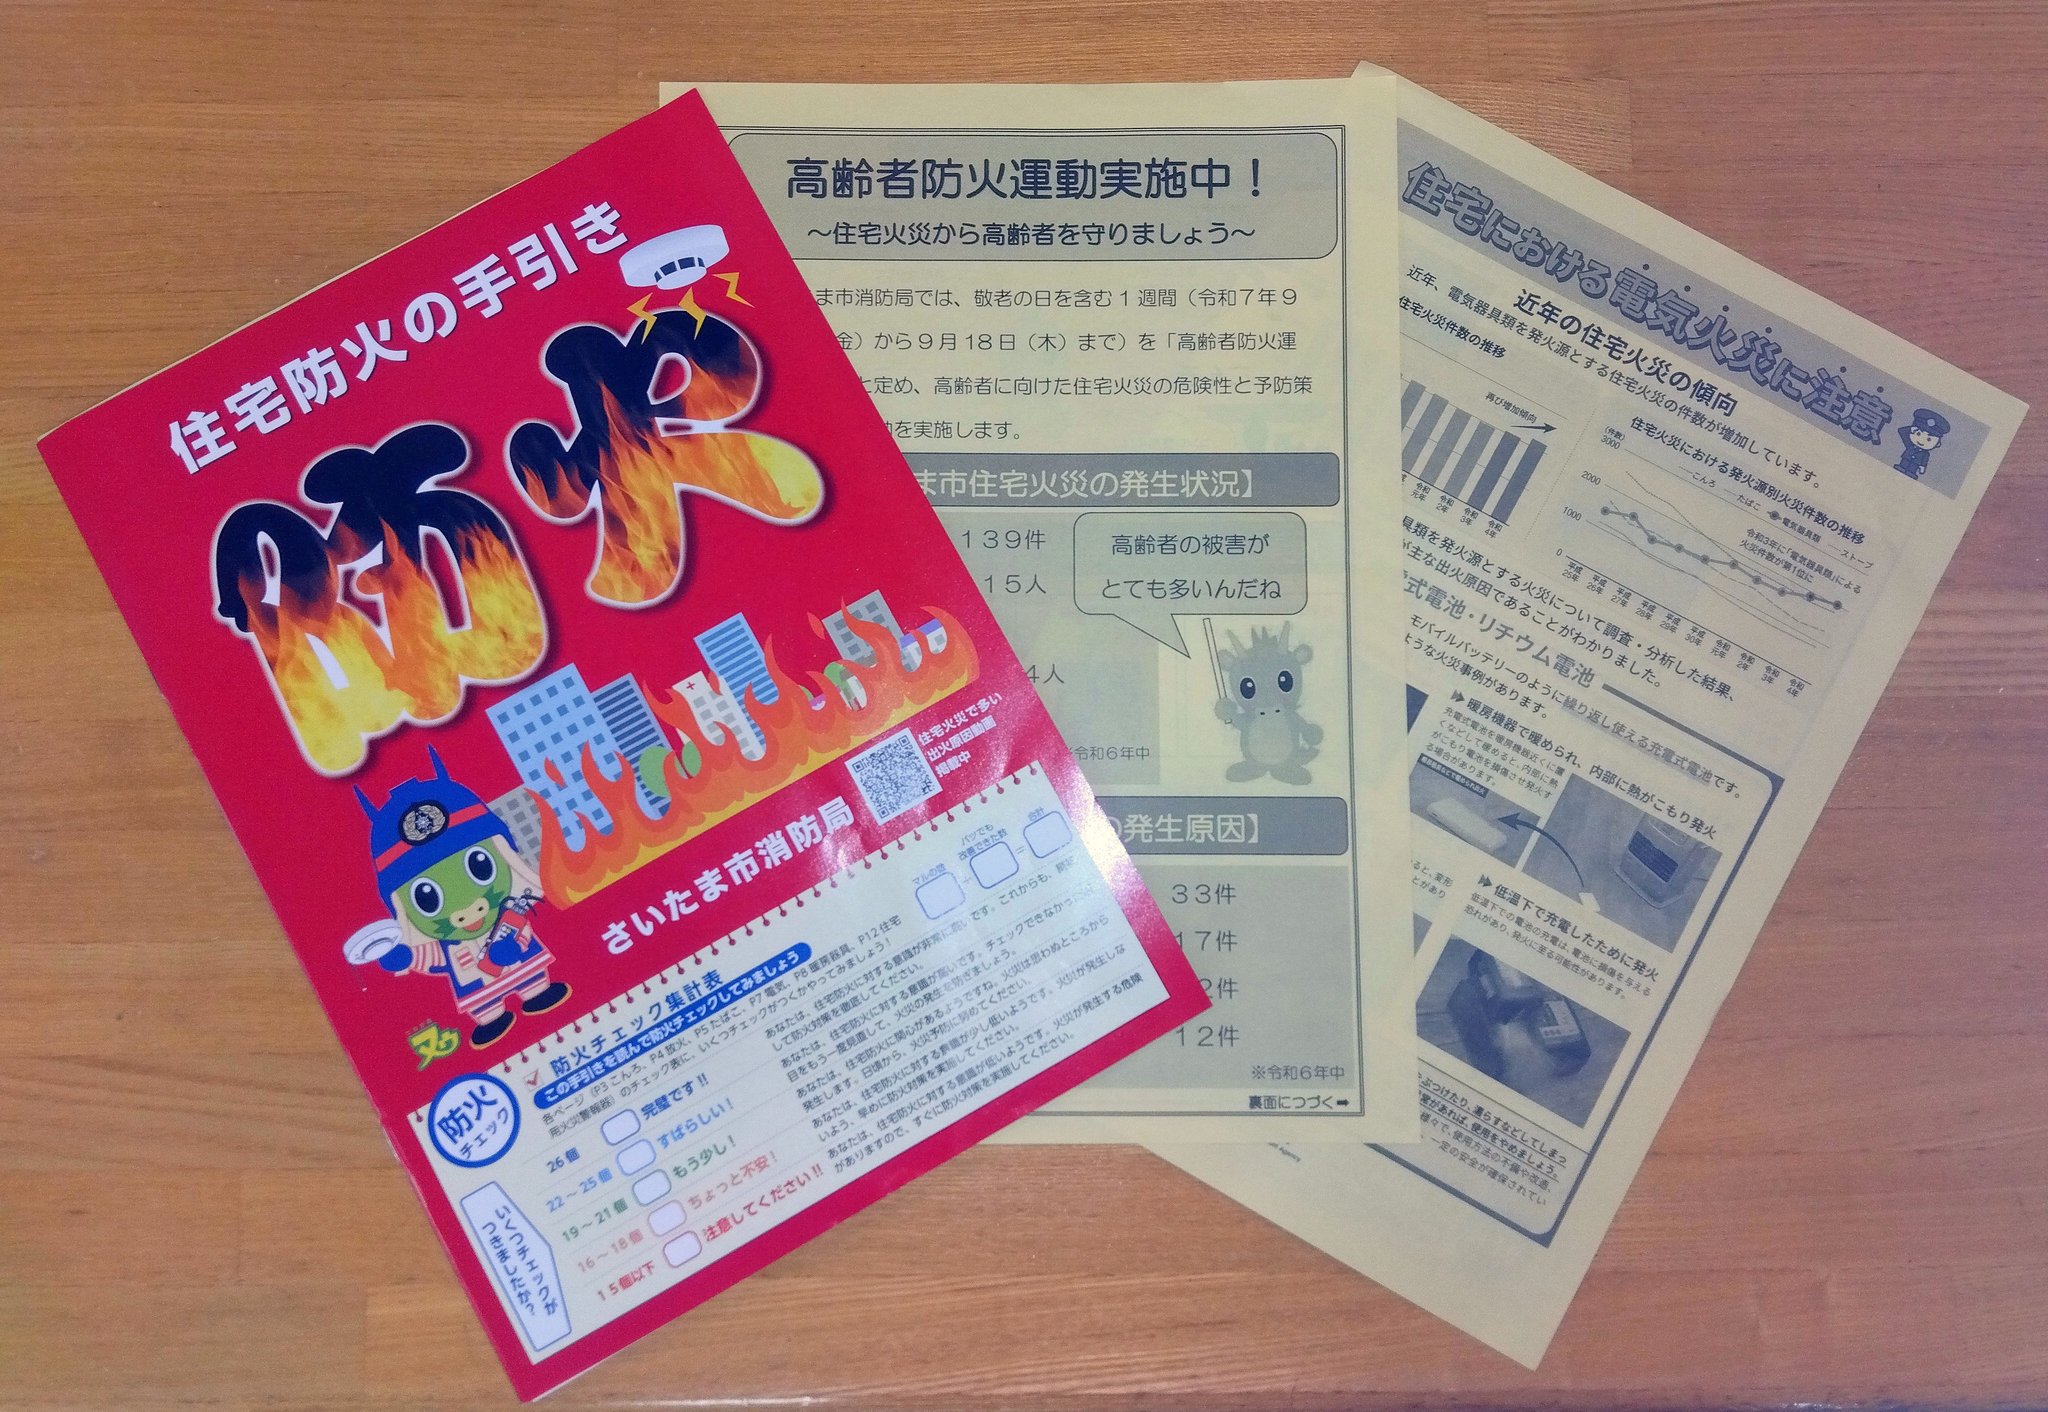 住宅防火の手引き
防火
住宅火災で多い
出火原因動画
掲載中
さいたま市消防局
マルの数
バツでも
改善できた数
合計
防火チェック集計表
この手引きを読んで防火チェックしてみましょう
各ページ(P3 こんろ、P4 放火、P5 たばこ、P7 電気、P8 暖房器具、P12 住宅
用火災警報器)のチェック表に、いくつチェックがつくかやってみましょう!
防火
チェック
いくつチェックが
つきましたか?
26 個
完璧です!!
22~25 個
すばらしい!
19~21 個
もう少し!
16~18 個
ちょっと不安!
15個以下
注意してください!!
あなたは、住宅防火に対する意識が非常に高いです。これからも、
して防火対策を徹底してください。
あなたは、住宅防火に対する意識が高いです。チェックできなかった
目をもう一度見直して、火災の発生を防ぎましょう。
あなたは、住宅防火に関心があるようですね。火災は思わぬところから
発生します。日頃から、火災予防に努めてください。
あなたは、住宅防火に対する意識が少し低いようです。火災が発生しな
いよう、早めに防火対策を実施してください。
あなたは、住宅防火に対する意識が低いようです。火災が発生する危険
がありますので、すぐに防火対策を実施してください。
高齢者防火運動実施中!
~住宅火災から高齢者を守りましょう~
ま市消防局では、敬老の日を含む1週間(令和7年9
金)から9月18日(木)まで)を「高齢者防火運
と定め、高齢者に向けた住宅火災の危険性と予防策
を実施します。
ま市住宅火災の発生状況】
139件
15人
4人
高齢者の被害が
とても多いんだね
※令和6年中
の発生原因】
33件
17件
2件
12件
※令和6年中
裏面につづく➡
住宅における電気火災に注意
近年の住宅火災の傾向
近年、電気器具類を発火源とする住宅火災の件数が増加しています。
住宅火災件数の推移
再び増加傾向
令和
元年
令和
2年
令和
3年
令和
4年
住宅火災における発火源別火災件数の推移
(件数)
3000
2000
1000
0
こんろ
たばこ
電気器具類
ストーブ
令和3年に「電気器具類」による
火災件数が第1位に
平成
25年
平成
26年
平成
27年
平成
28年
平成
29年
平成
30年
令和
元年
令和
2年
令和
3年
令和
4年
具類を発火源とする火災について調査・分析した結果、
が主な出火原因であることがわかりました。
式電池・リチウム電池
モバイルバッテリーのように繰り返し使える充電式電池です。
ような火災事例があります。
暖房機器で暖められ、内部に熱がこもり発火
充電式電池を暖房機器近くに置
くなどして暖めると、内部に熱
がこもり電池を損傷させ発火す
る場合があります。
低温下で充電したために発火
低温下での電池の充電は、電池に損傷を与える
恐れがあり、発火に至る可能性があります。
ると、変形
とがあり
ぶつけたり、濡らすなどしてしまっ
常があれば、使用をやめましょう。
様々で、使用方法の不備や改造、
一定の安全が確保されてい
Agency